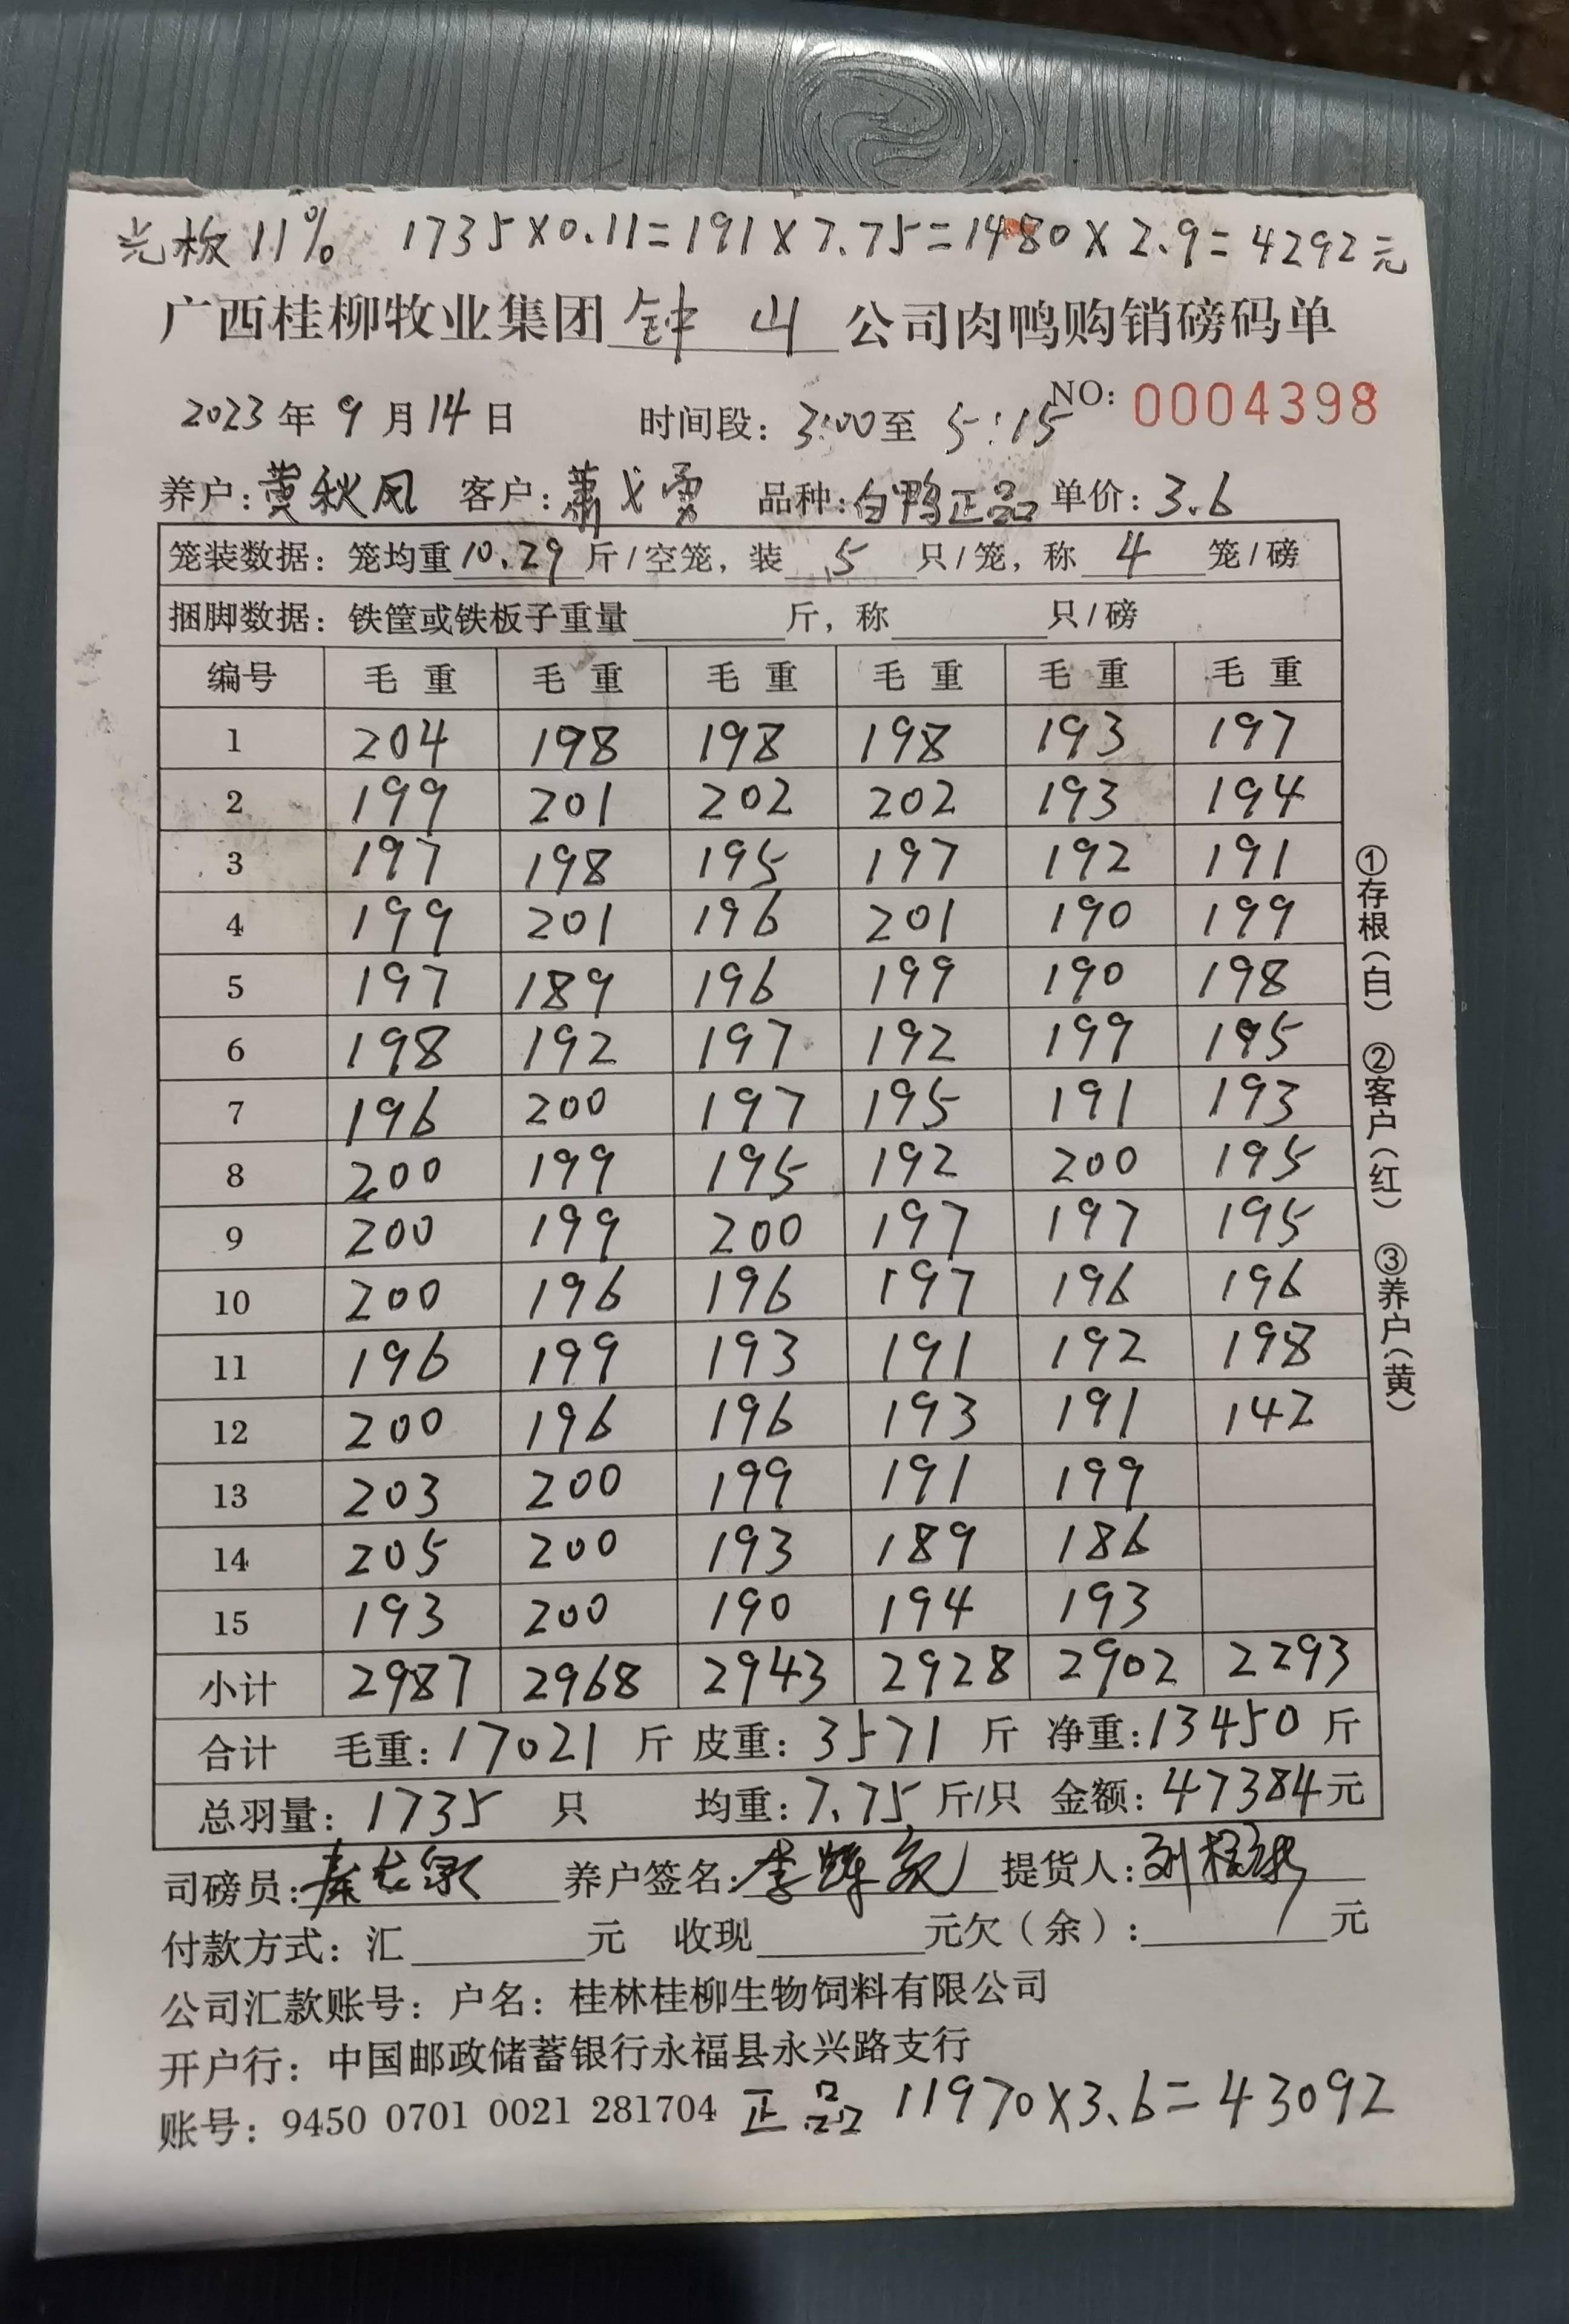 光板11% 1735×0.11=191×7.75=1480×2.9=4292元
广西桂柳牧业集团 钟山 公司肉鸭购销磅码单
NO: 0004398
2023年9月14日 时间段: 3:00至 5:15
养户: 黄秋风 客户: 萧 勇 品种: 白鸭正品 单价: 3.6
笼装数据: 笼均重 10.29 斤/空笼, 装 5 只/笼, 称 4 笼/磅
捆脚数据: 铁筐或铁板子重量 斤, 称 只/磅
编号 毛重 毛重 毛重 毛重 毛重 毛重
1 204 198 198 198 193 197
2 199 201 202 202 193 194
3 197 198 195 197 192 191
4 199 201 196 201 190 199
5 197 189 196 199 190 198
6 198 192 197 192 199 195
7 196 200 197 195 191 193
8 200 199 195 192 200 195
9 200 199 200 197 197 195
10 200 196 196 197 196 196
11 196 199 193 191 192 198
12 200 196 196 193 191 142
13 203 200 199 191 199
14 205 200 193 189 186
15 193 200 190 194 193
小计 2987 2968 2943 2928 2902 2293
合计 毛重: 17021 斤 皮重: 3571 斤 净重: 13450 斤
总羽量: 1735 只 均重: 7.75 斤/只 金额: 47384元
司磅员: 养户签名: 提货人:
付款方式: 汇 元 收现 元欠(余): 元
公司汇款账号: 户名: 桂林桂柳生物饲料有限公司
开户行: 中国邮政储蓄银行永福县永兴路支行
账号: 9450 0701 0021 281704 正品 11970×3.6=43092
①存根(白) ②客户(红) ③养户(黄)